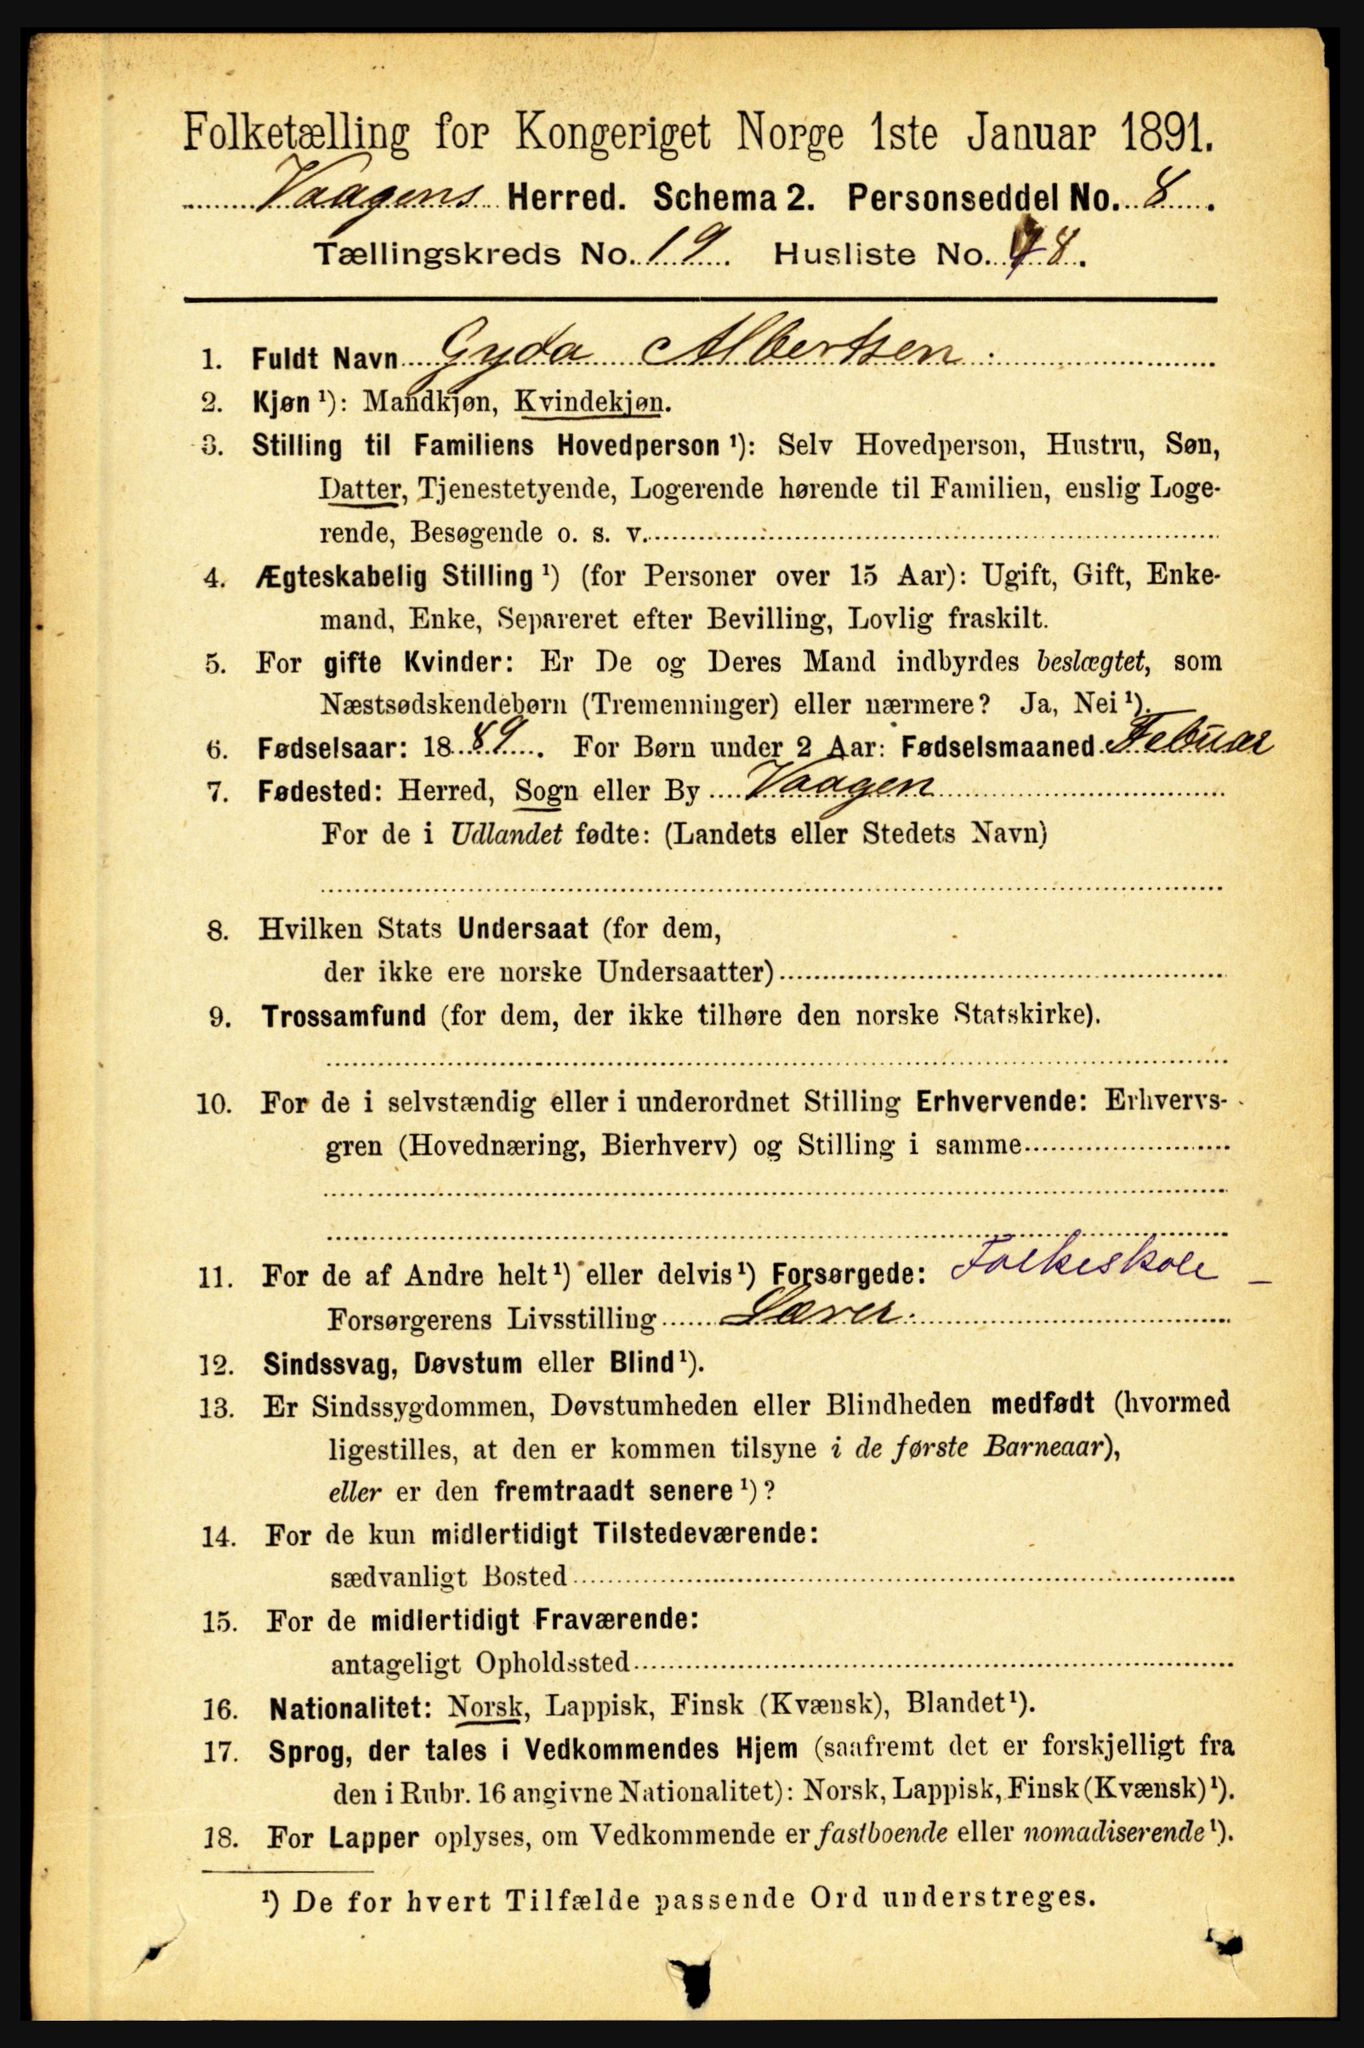 Folketælling for Kongeriget Norge 1ste Januar 1891.
Vaagens Herred. Schema 2. Personseddel No. 8.
Tællingskreds No. 19. Husliste No. 8.
1. Fuldt Navn Gyda Albertsen.
2. Kjøn ¹): Mandkjøn, Kvindekjøn.
3. Stilling til Familiens Hovedperson ¹): Selv Hovedperson, Hustru, Søn,
Datter, Tjenestetyende, Logerende hørende til Familien, enslig Loge-
rende, Besøgende o. s. v.
4. Ægteskabelig Stilling ¹) (for Personer over 15 Aar): Ugift, Gift, Enke-
mand, Enke, Separeret efter Bevilling, Lovlig fraskilt.
5. For gifte Kvinder: Er De og Deres Mand indbyrdes beslægtet, som
Næstsødskendebørn (Tremenninger) eller nærmere? Ja, Nei ¹).
6. Fødselsaar: 1889. For Børn under 2 Aar: Fødselsmaaned Febuar
7. Fødested: Herred, Sogn eller By Vaagen
For de i Udlandet fødte: (Landets eller Stedets Navn)
8. Hvilken Stats Undersaat (for dem,
der ikke ere norske Undersaatter)
9. Trossamfund (for dem, der ikke tilhøre den norske Statskirke).
10. For de i selvstændig eller i underordnet Stilling Erhvervende: Erhvervs-
gren (Hovednæring, Bierhverv) og Stilling i samme
11. For de af Andre helt ¹) eller delvis ¹) Forsørgede: Folkeskole -
Forsørgerens Livsstilling Lærer.
12. Sindssvag, Døvstum eller Blind ¹).
13. Er Sindssygdommen, Døvstumheden eller Blindheden medfødt (hvormed
ligestilles, at den er kommen tilsyne i de første Barneaar),
eller er den fremtraadt senere ¹)?
14. For de kun midlertidigt Tilstedeværende:
sædvanligt Bosted
15. For de midlertidigt Fraværende:
antageligt Opholdssted
16. Nationalitet: Norsk, Lappisk, Finsk (Kvænsk), Blandet ¹).
17. Sprog, der tales i Vedkommendes Hjem (saafremt det er forskjelligt fra
den i Rubr. 16 angivne Nationalitet): Norsk, Lappisk, Finsk (Kvænsk) ¹).
18. For Lapper oplyses, om Vedkommende er fastboende eller nomadiserende ¹).
¹) De for hvert Tilfælde passende Ord understreges.